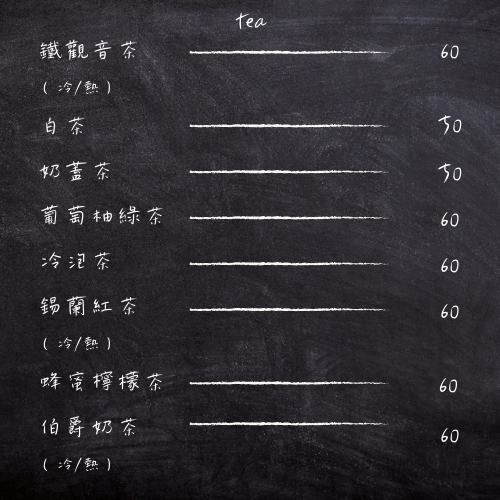 tea
鐵觀音茶 60
( 冷/熱 )
白茶 50
奶蓋茶 50
葡萄柚綠茶 60
冷泡茶 60
錫蘭紅茶 60
( 冷/熱 )
蜂蜜檸檬茶 60
伯爵奶茶 60
( 冷/熱 )